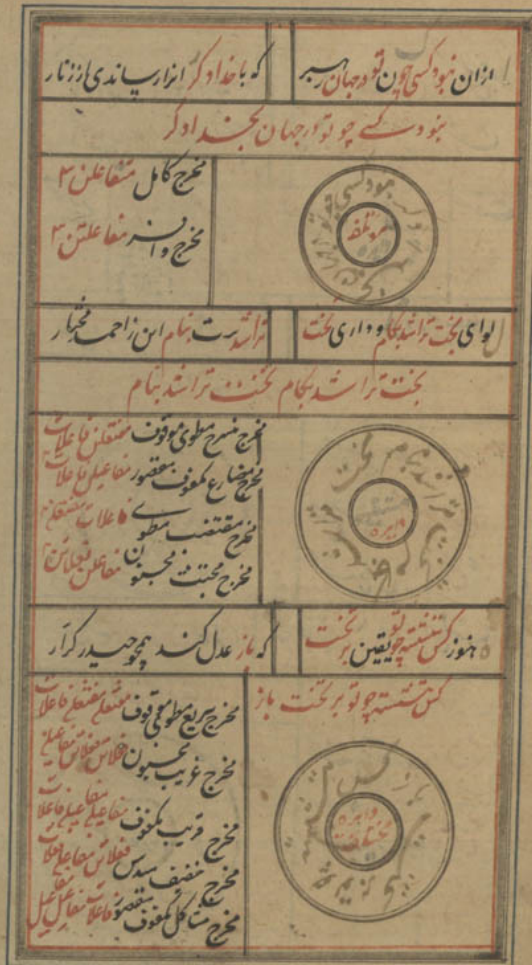 ازان نبود کسی چون تو در جهان رهبر
که با خداد کر
نبود کسے چو تو در جهان بخداد کر
مخرج کامل متفاعلن ۲
مخرج وافر مفاعلتن ۲
دایره
لوای بخت تراشد بکام وداری تخت
تراشد بنام ابن احمد مختار
بخت تراشد بکام تخت تراشد بنام
مخرج منسرح مطوی موقوف مفتعلن فاعلات
مخرج مضارع مکفوف مقصور مفاعیل فاعلات
مخرج مقتضب مطوے فاعلات مفتعلن
مخرج مجتث مخبون مفاعلن فعلاتن
دایره
هنوز کس ننشسته چو تو یقین بر تخت
که باز عدل کند همچو حیدر کرار
کس ننشسته چو تو بر تخت باز
مخرج سریع مطوی موقوف مفتعلن مفتعلن فاعلات
مخرج غریب مخبون فعلاتن فعلاتن مفاعلن
مخرج قریب مکفوف مفاعیل مفاعیل فاعلات
مخرج خفیف مسدس فعلاتن مفاعلن فعلاتن
مخرج مشاکل مکفوف مقصور فاعلات مفاعیل مفاعیل
دایره